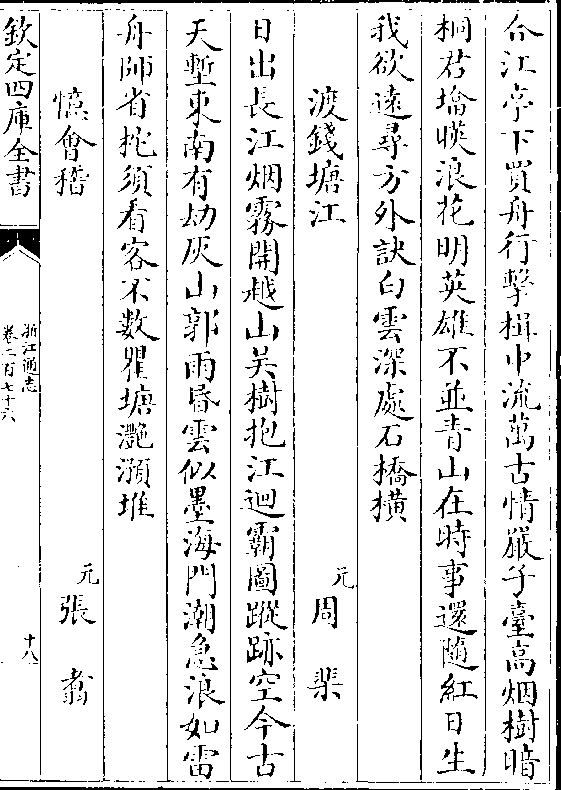 合江亭下買舟行擊楫中流萬古情嚴子臺高烟樹暗
桐君墖暎浪花明英雄不並青山在時事還隨紅日生
我欲遠尋方外訣白雲深處石橋橫
渡錢塘江　元周棐
日出長江烟霧開越山吳樹抱江迴霸圖蹤跡空今古
天塹東南有劫灰山郭雨昏雲似墨海門潮急浪如雷
舟師省柁須看客不數瞿塘灔澦堆
憶會稽　元張翥
欽定四庫全書
浙江通志
卷二百七十六
十八